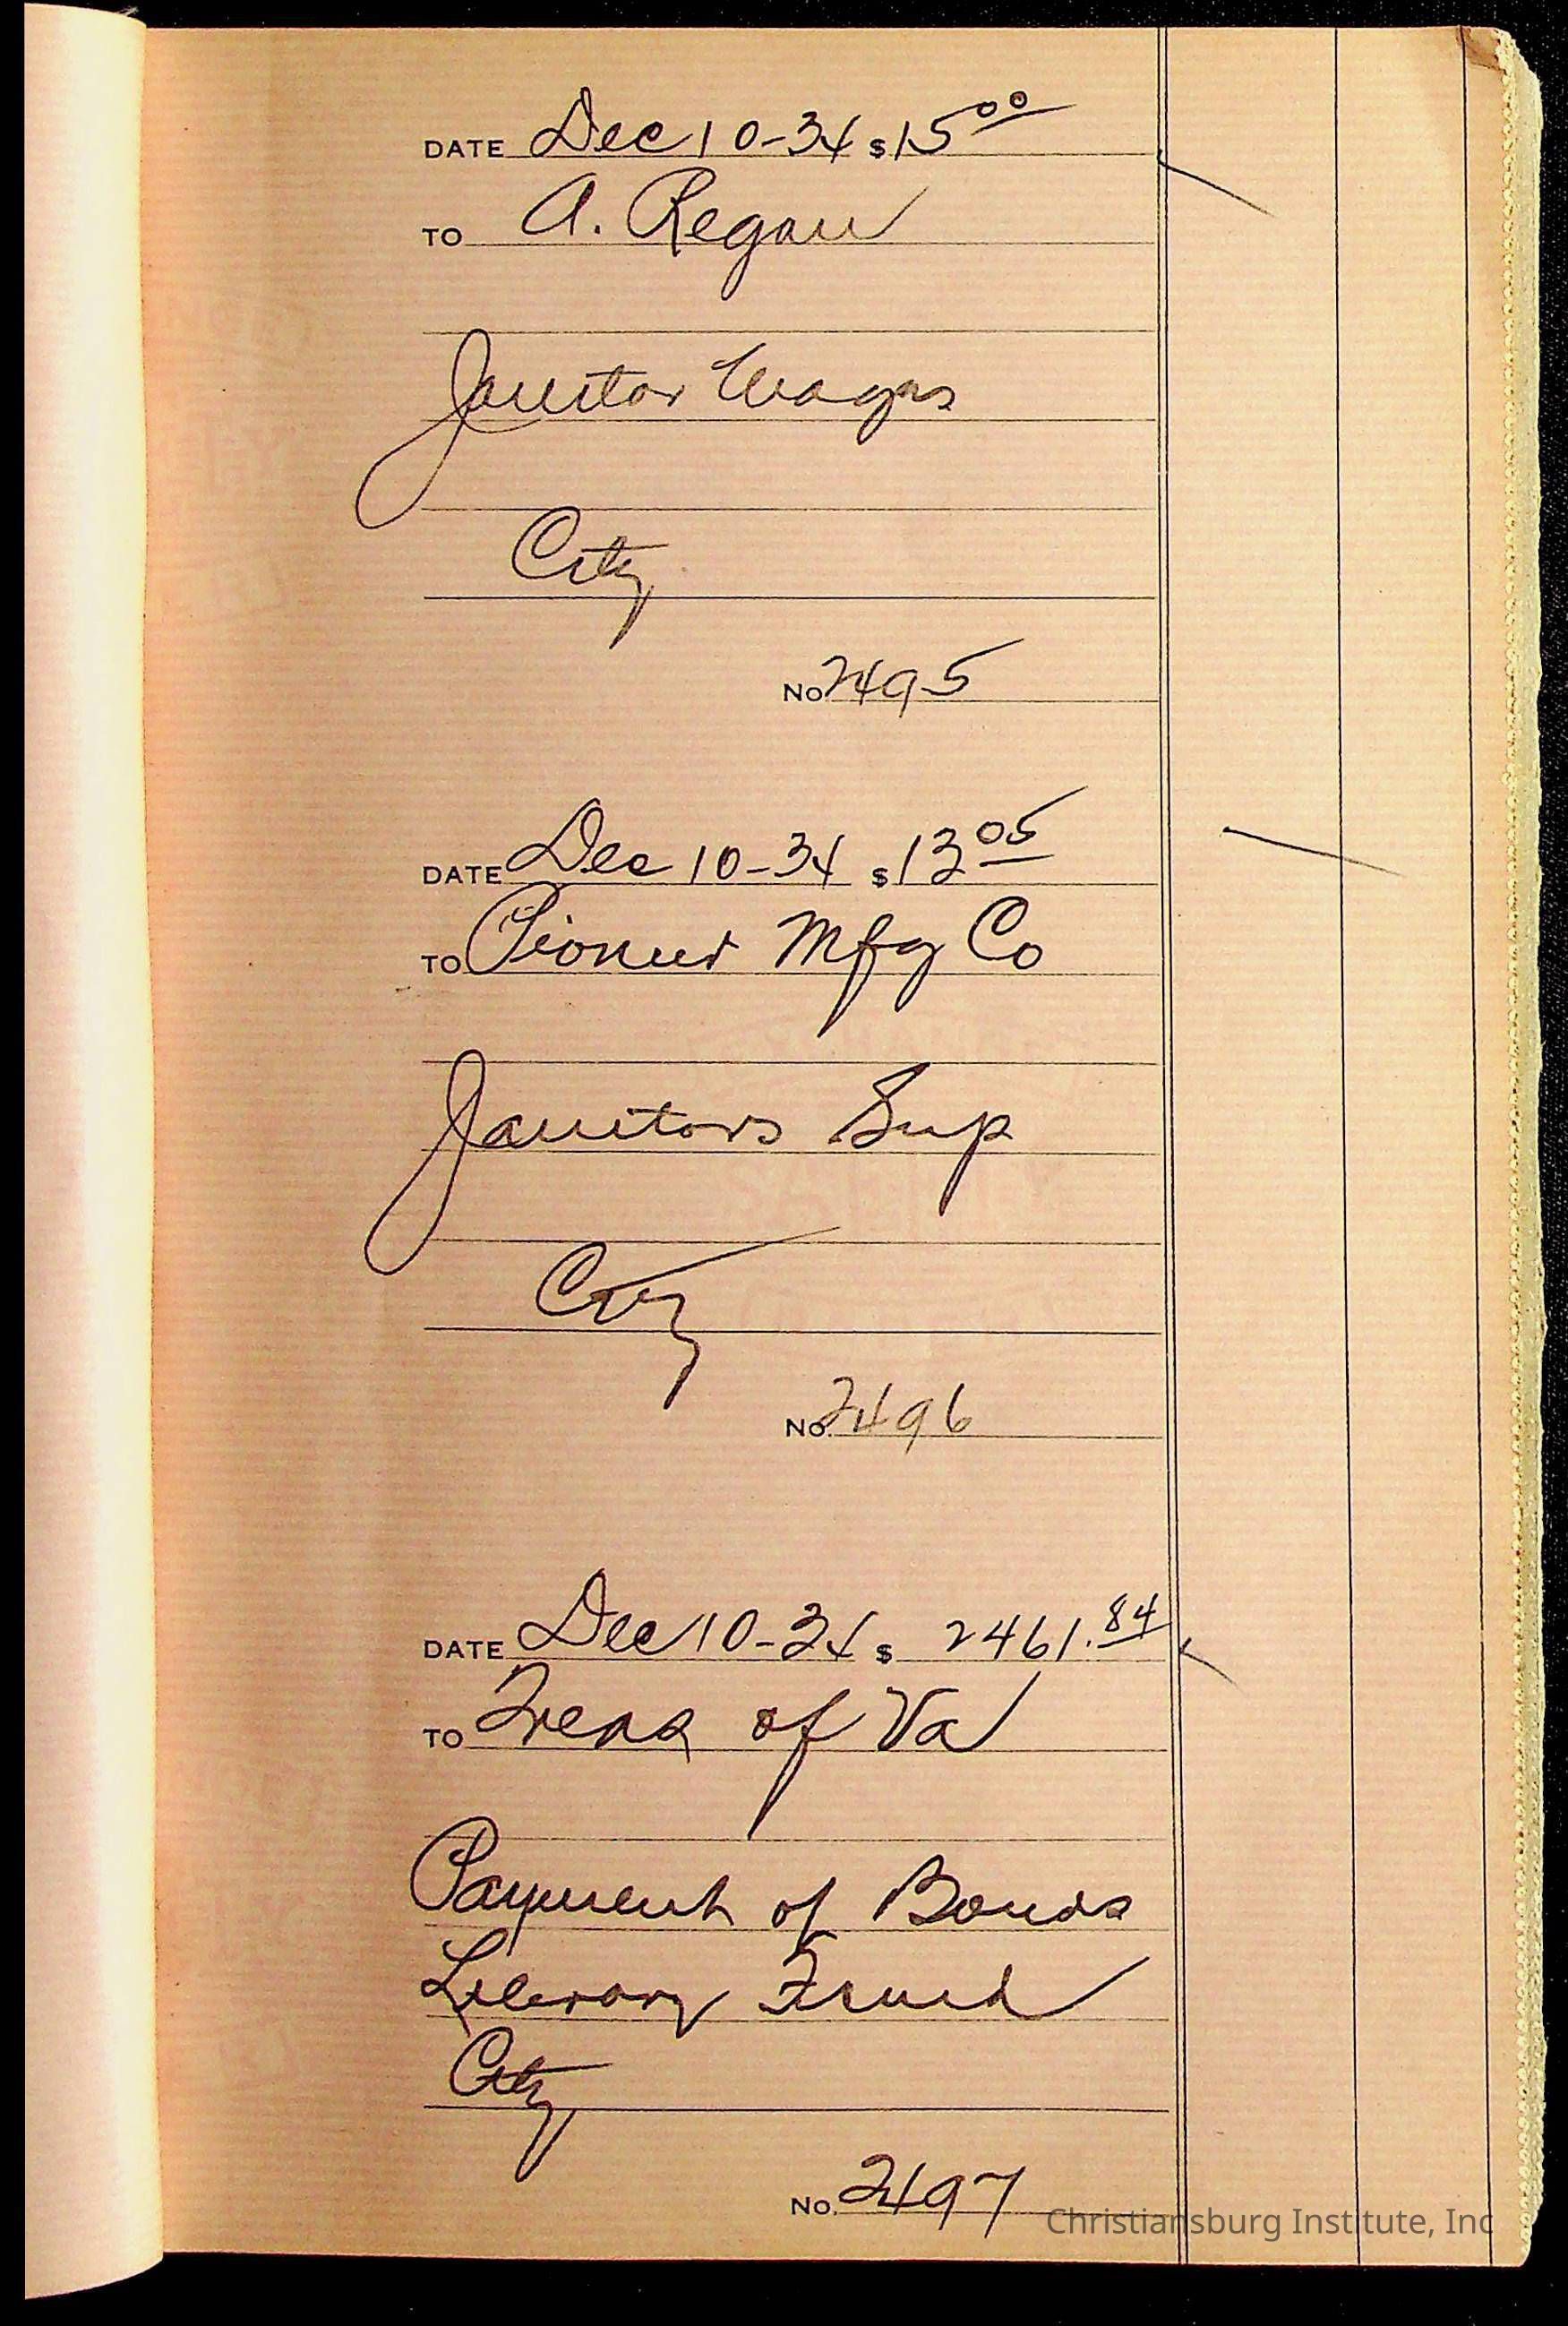 DATE Dec 10-34 $ 15 00
TO A. Regan
Janitor Wages
City
No 2495
DATE Dec 10-34 $ 13 05
TO Pioneer Mfg Co
Janitors Sup
City
No. 2496
DATE Dec 10-34 $ 2461.84
TO Treas of Va
Payment of Bonds
Literary Fund
City
No. 2497
Christiansburg Institute, Inc